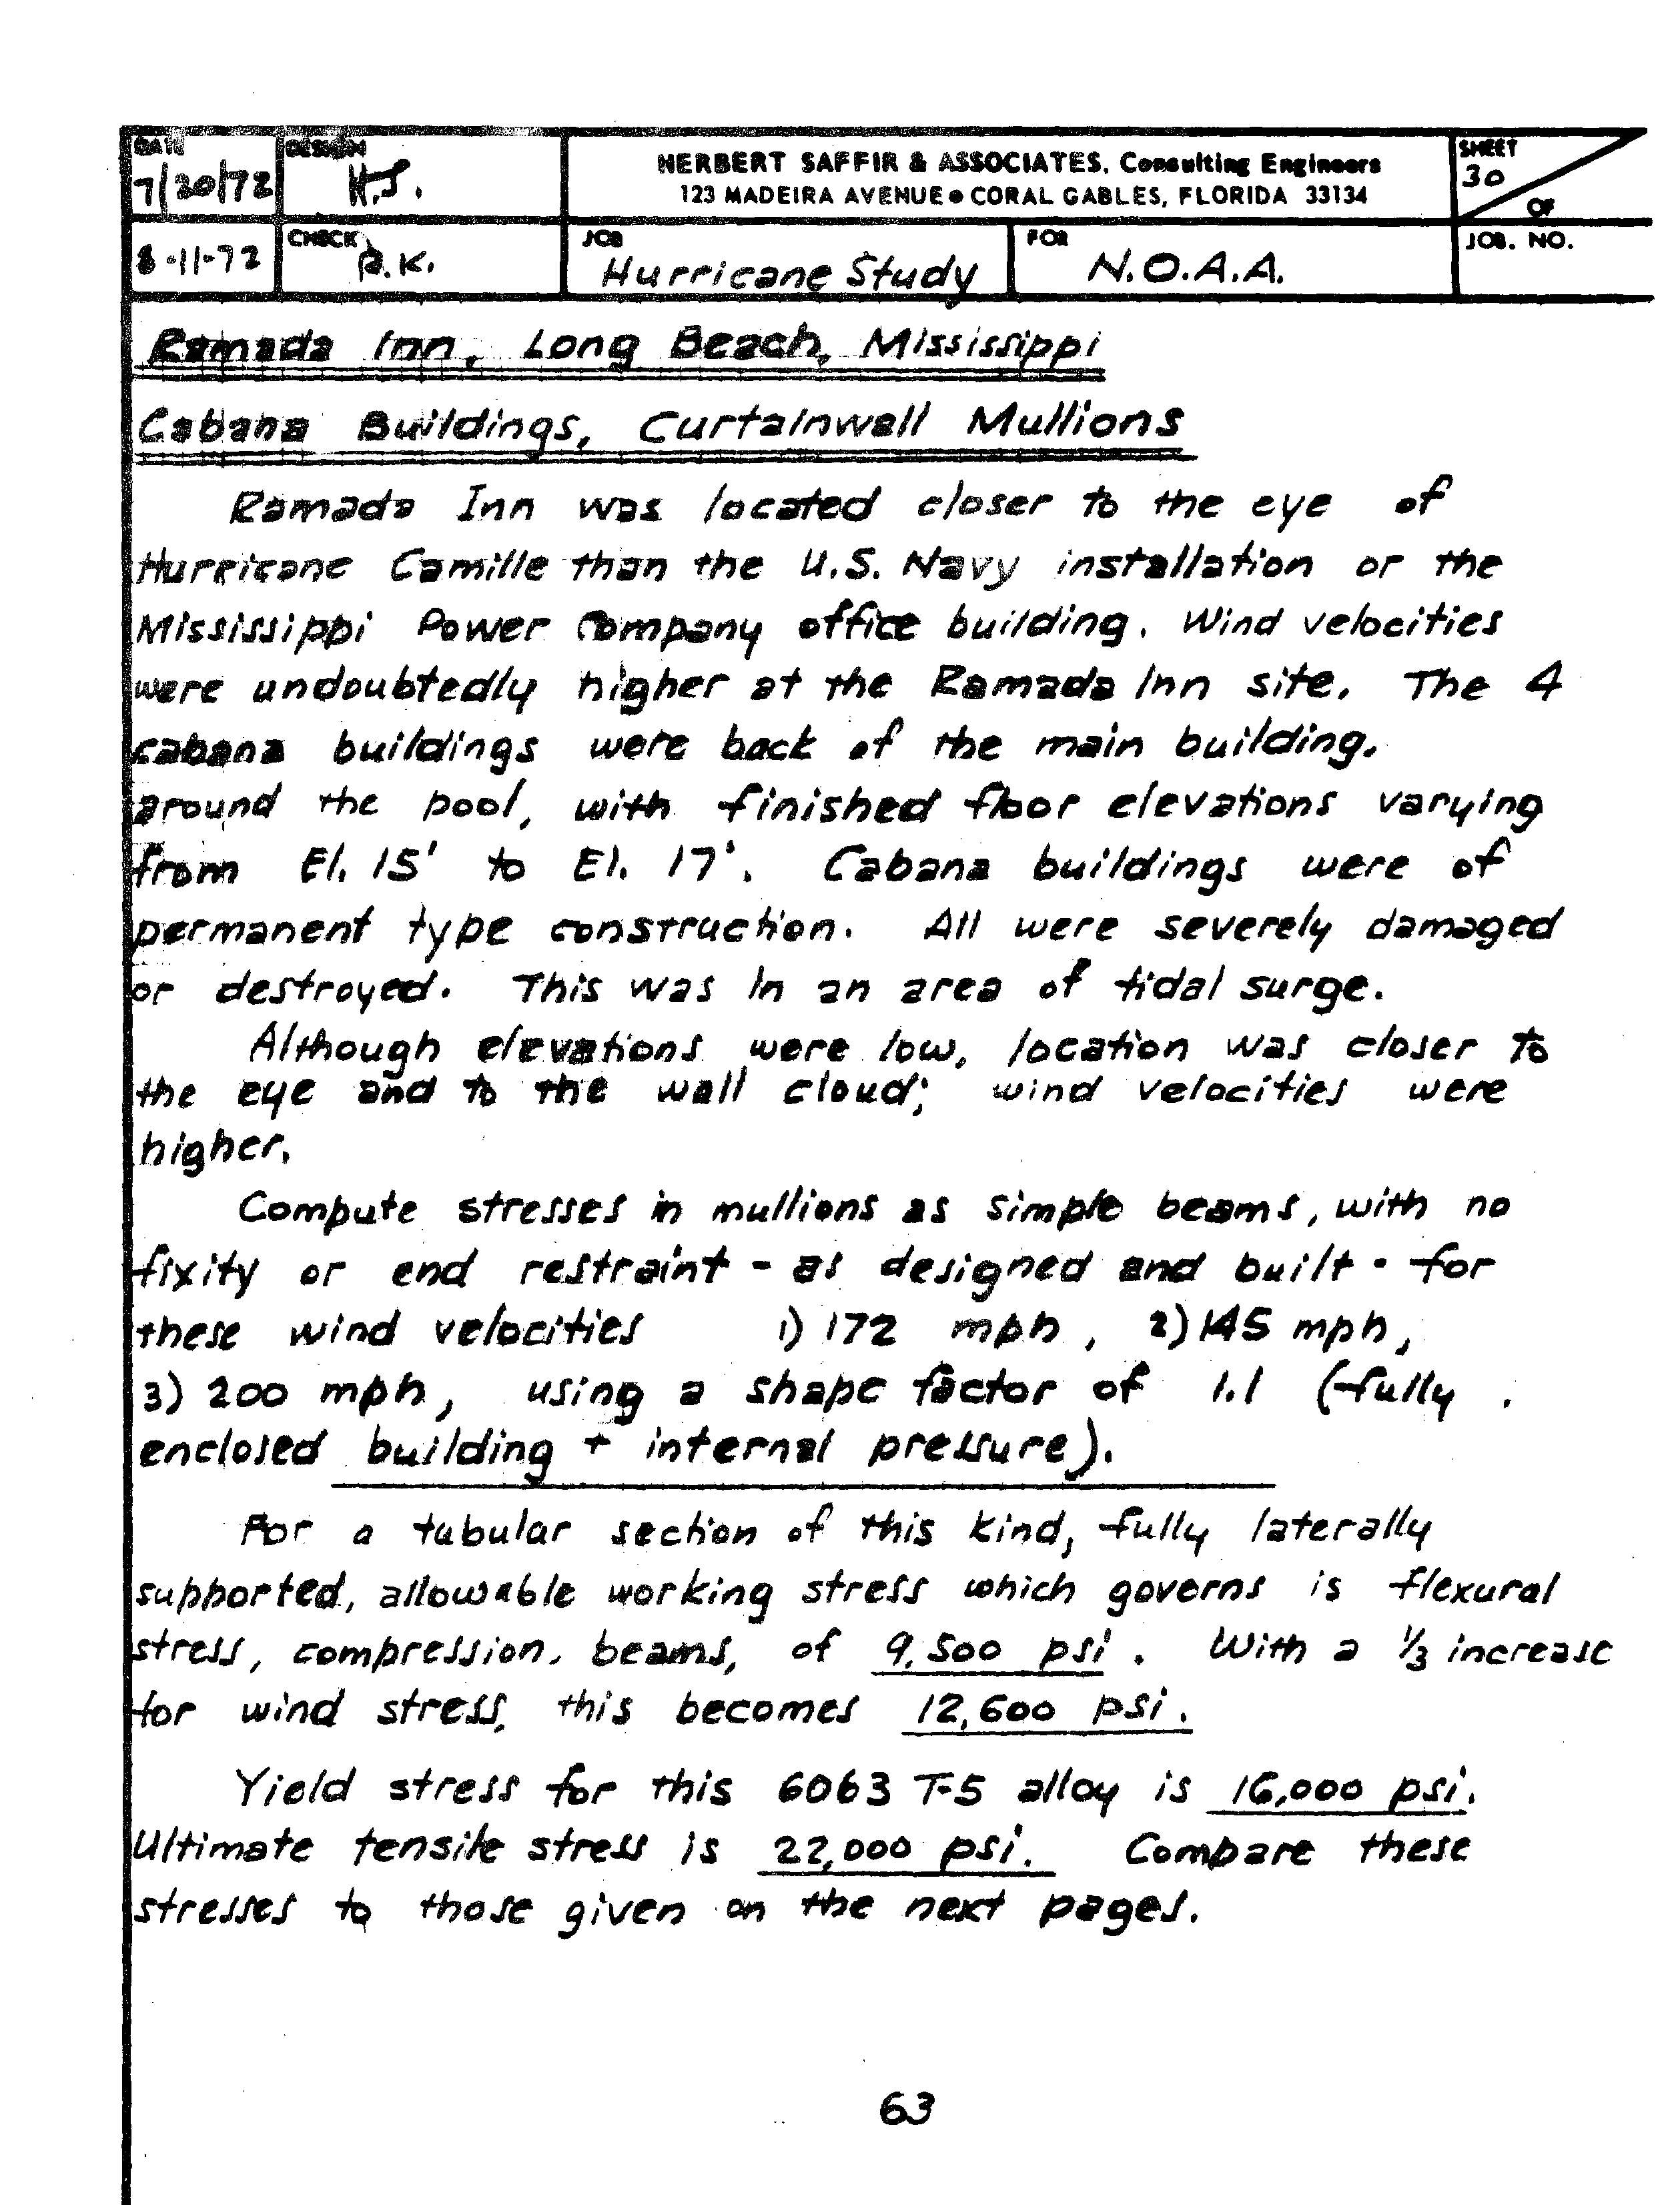 DATE
7/20/72
DESIGN
H.S.
HERBERT SAFFIR & ASSOCIATES, Consulting Engineers
123 MADEIRA AVENUE • CORAL GABLES, FLORIDA 33134
SHEET
30
OF
8-11-72
CHECK
R.K.
JOB
Hurricane Study
FOR
N.O.A.A.
JOB. NO.
Ramada Inn, Long Beach, Mississippi
Cabana Buildings, Curtainwall Mullions
Ramada Inn was located closer to the eye of
Hurricane Camille than the U.S. Navy installation or the
Mississippi Power Company office building. Wind velocities
were undoubtedly higher at the Ramada Inn site. The 4
cabana buildings were back of the main building.
around the pool, with finished floor elevations varying
from El. 15' to El. 17'. Cabana buildings were of
permanent type construction. All were severely damaged
or destroyed. This was in an area of tidal surge.
Although elevations were low, location was closer to
the eye and to the wall cloud; wind velocities were
higher.
Compute stresses in mullions as simple beams, with no
fixity or end restraint - as designed and built - for
these wind velocities 1) 172 mph, 2) 145 mph,
3) 200 mph, using a shape factor of 1.1 (fully
enclosed building + internal pressure).
For a tubular section of this kind, fully laterally
supported, allowable working stress which governs is flexural
stress, compression, beams, of 9,500 psi. With a 1/3 increase
for wind stress, this becomes 12,600 psi.
Yield stress for this 6063 T-5 alloy is 16,000 psi.
Ultimate tensile stress is 22,000 psi. Compare these
stresses to those given on the next pages.
63